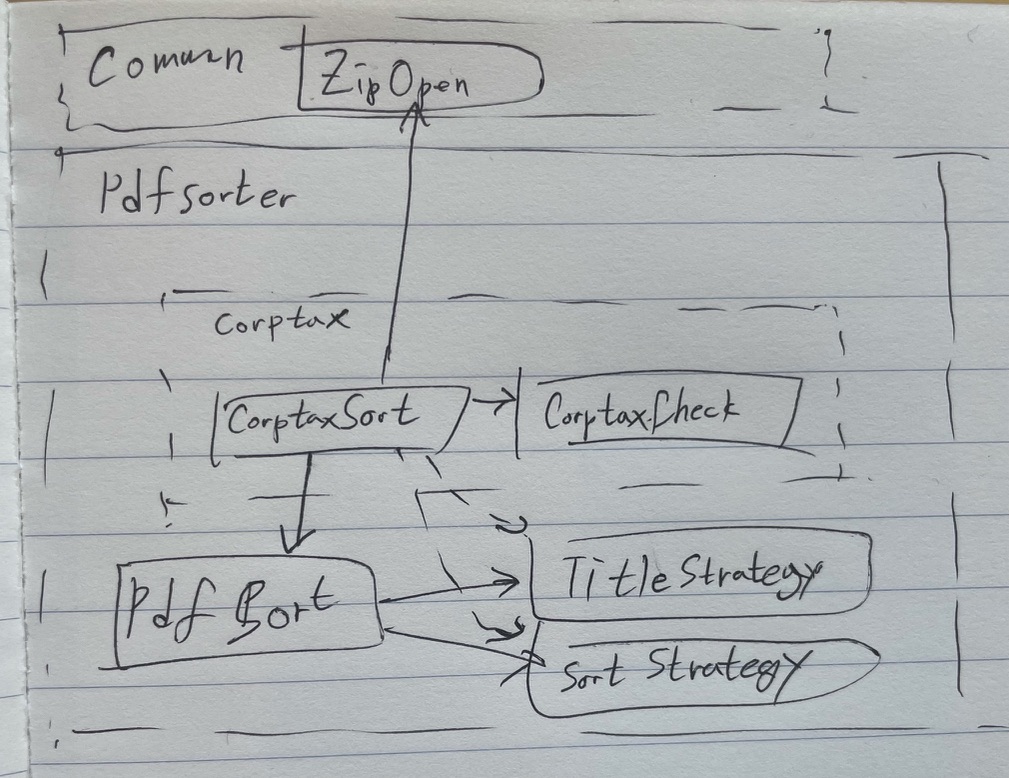 Comuzn
ZipOpen
Pdfsorter
Corptax
CorptaxSort
CorptaxCheck
TitleStrategy
Pdf Sort
Sort Strategy